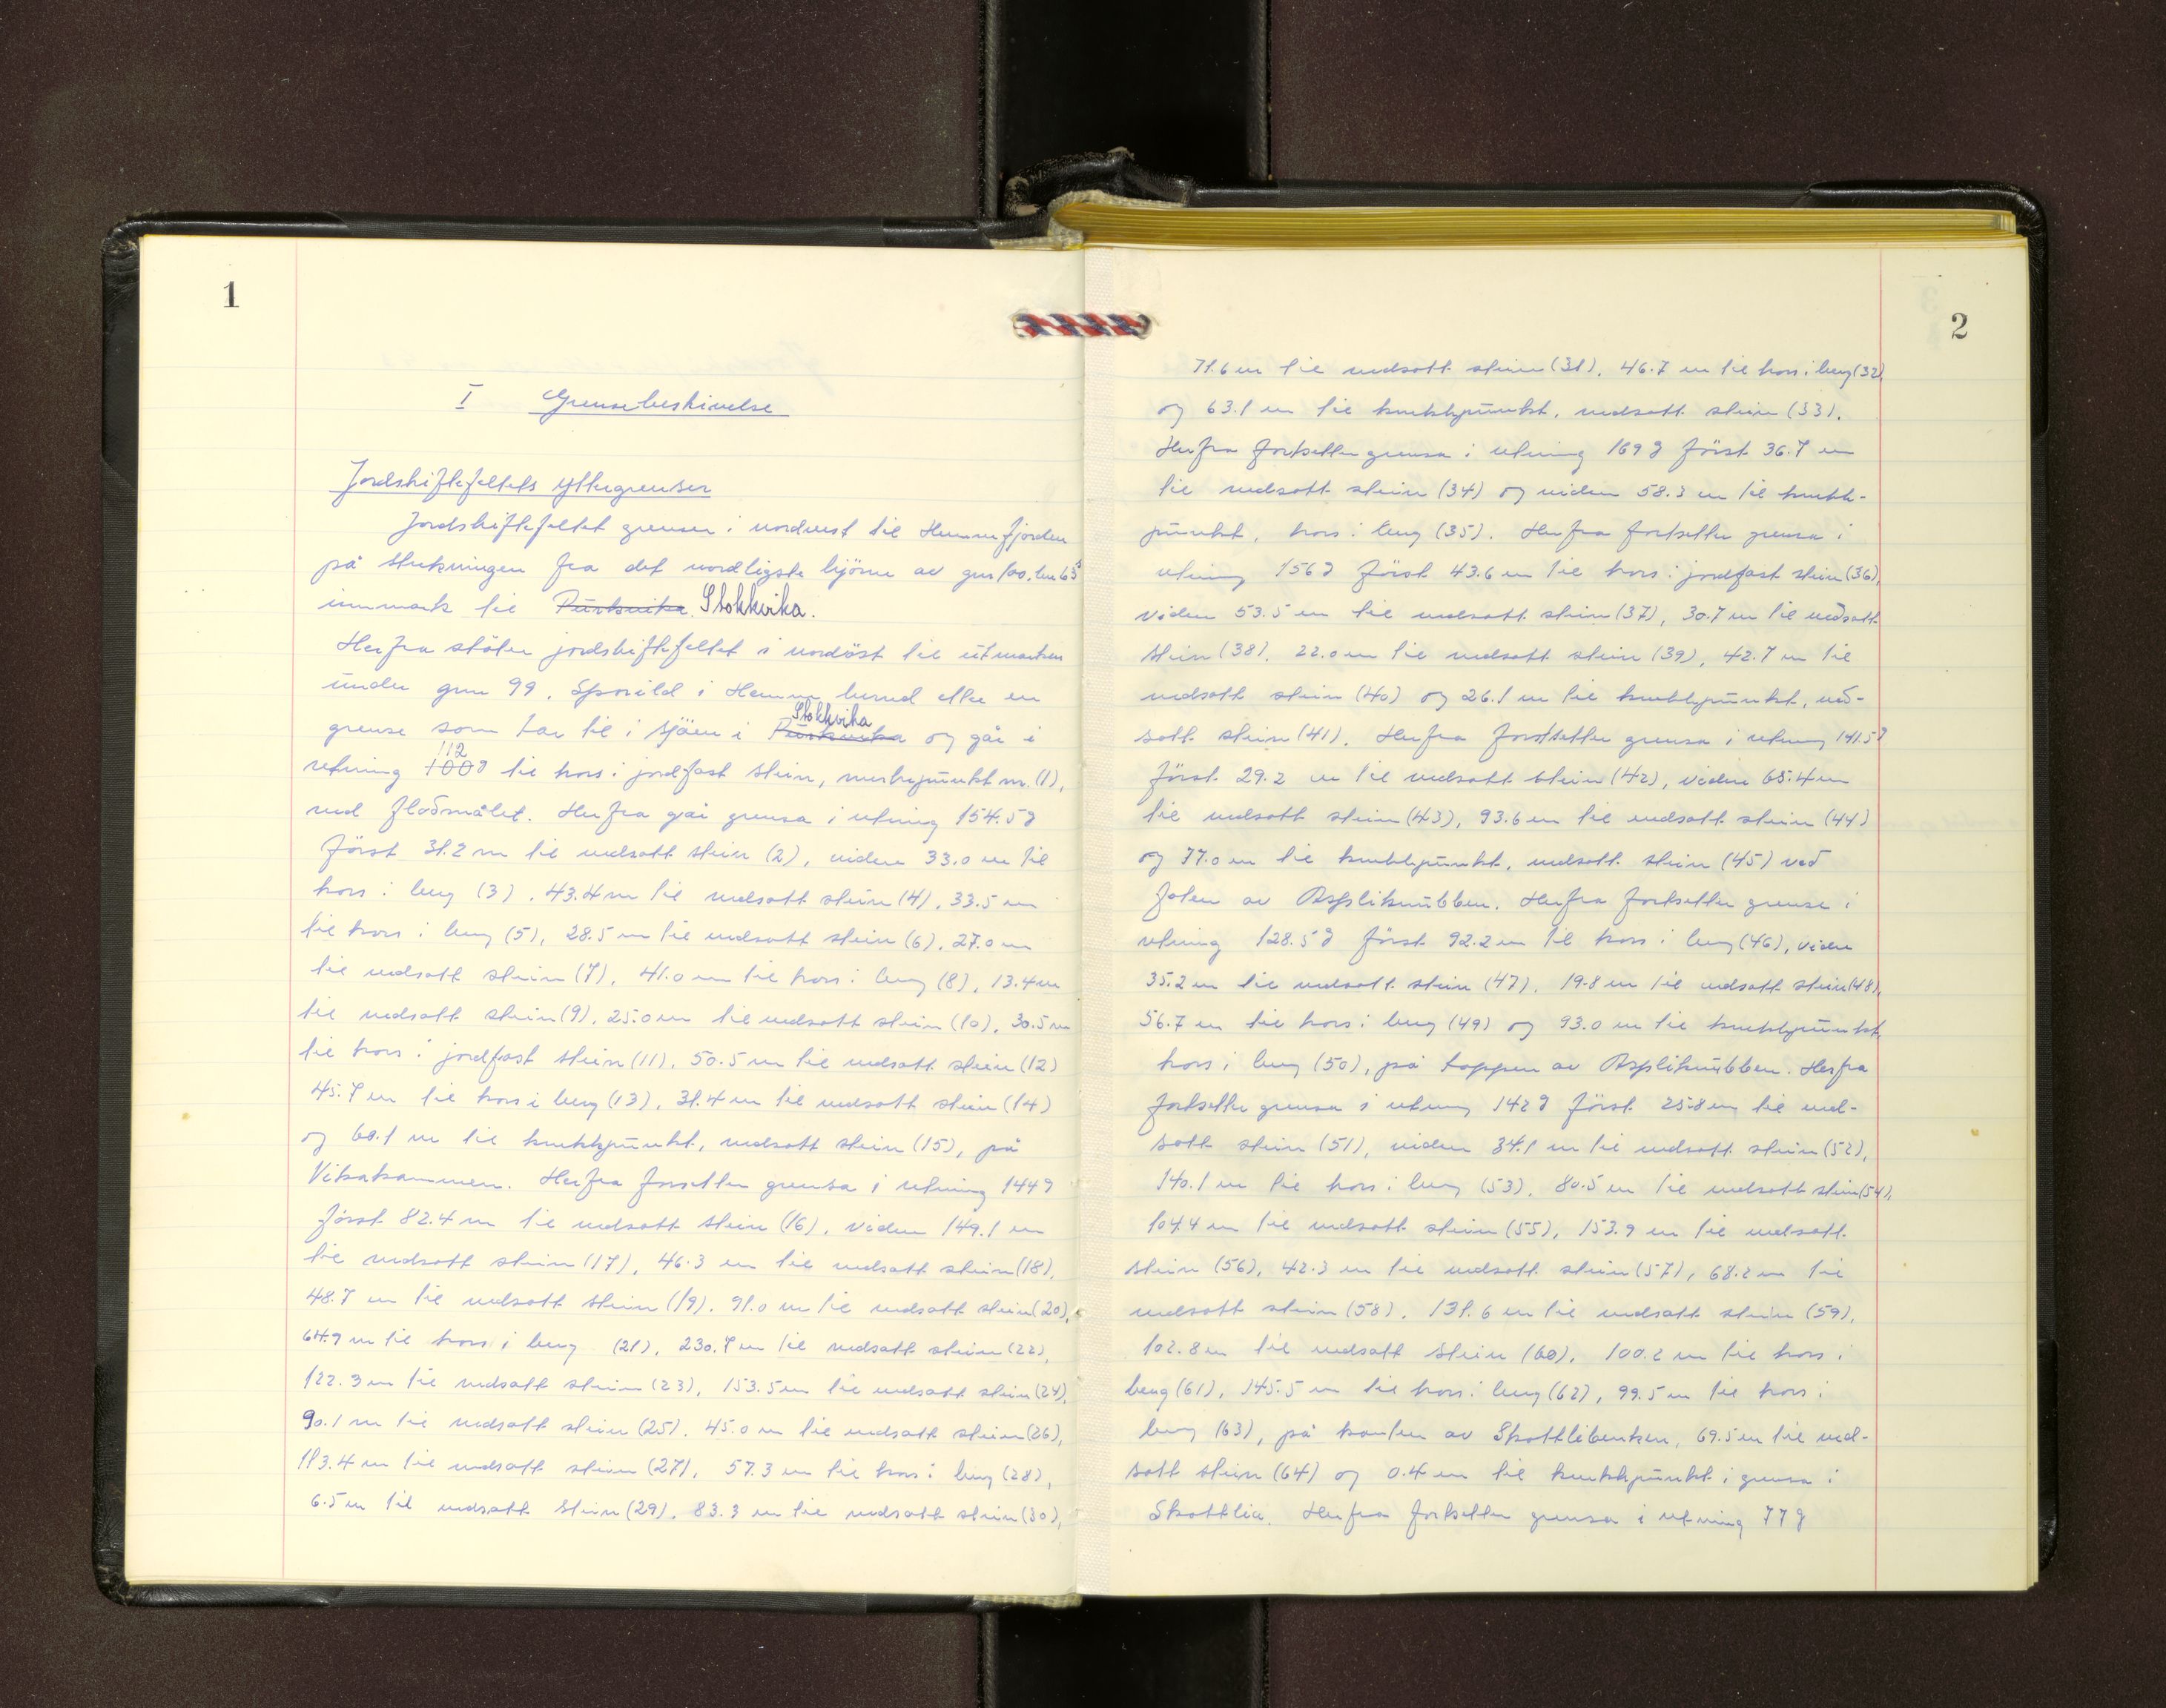 1
I Grensebeskrivelse
Jordskiftefeltets yttergrenser
Jordskiftefeltet grenser i nordvest til Hemnefjorden
på strekningen fra det nordligste hjörne av gnr 100, bnr 63s
innmark til Purkvika. Stokkvika.
Herfra stöter jordskiftefeltet i nordöst til utmarken
under gnr 99. Sponild i Hemne herred etter en
Stokkvika
grense som tar til i sjöen i Purkvika og går i
112
retning 100g til kors i jordfast stein, merkepunkt nr. (1),
ved flodmålet. Herfra går grensa i retning 154.5g
först 31.2 m til nedsatt stein (2), videre 33.0 m til
kors i berg (3), 43.4 m til nedsatt stein (4), 33.5 m
til kors i berg (5), 28.5 m til nedsatt stein (6), 27.0 m
til nedsatt stein (7), 41.0 m til kors i berg (8), 13.4 m
til nedsatt stein (9), 25.0 m til nedsatt stein (10), 30.5 m
til kors i jordfast stein (11), 50.5 m til nedsatt stein (12)
45.7 m til kors i berg (13), 31.4 m til nedsatt stein (14)
og 60.1 m til knekkpunkt, nedsatt stein (15), på
Vikakammen. Herfra forsetter grensa i retning 144g
först 82.4 m til nedsatt stein (16), videre 149.1 m
til nedsatt stein (17), 46.3 m til nedsatt stein (18),
48.7 m til nedsatt stein (19), 91.0 m til nedsatt stein (20),
64.9 m til kors i berg (21), 230.7 m til nedsatt stein (22),
122.3 m til nedsatt stein (23), 153.5 m til nedsatt stein (24),
90.1 m til nedsatt stein (25), 45.0 m til nedsatt stein (26),
113.4 m til nedsatt stein (27), 57.3 m til kors i berg (28),
6.5 m til nedsatt stein (29), 83.3 m til nedsatt stein (30),
2
71.6 m til nedsatt stein (31), 46.7 m til kors i berg (32)
og 63.1 m til knekkpunkt, nedsatt stein (33).
Herfra fortsetter grensa i retning 169g först 36.7 m
til nedsatt stein (34) og videre 58.3 m til knekk-
punkt, kors i berg (35). Herfra fortsetter grensa i
retning 156g först 43.6 m til kors i jordfast stein (36),
videre 53.5 m til nedsatt stein (37), 30.7 m til nedsatt
stein (38), 22.0 m til nedsatt stein (39), 42.7 m til
nedsatt stein (40) og 26.1 m til knekkpunkt, ned-
satt stein (41). Herfra forstsetter grensa i retning 141.5g
först 29.2 m til nedsatt stein (42), videre 65.4 m
til nedsatt stein (43), 93.6 m til nedsatt stein (44)
og 77.0 m til knekkpunkt, nedsatt stein (45) ved
foten av Aspliknubben. Herfra fortsetter grensa i
retning 128.5g först 92.2 m til kors i berg (46), videre
35.2 m til nedsatt stein (47), 19.8 m til nedsatt stein (48),
56.7 m til kors i berg (49) og 93.0 m til knekkpunkt,
kors i berg (50), på toppen av Aspliknubben. Herfra
fortsetter grensa i retning 142g först 25.8 m til ned-
satt stein (51), videre 34.1 m til nedsatt stein (52),
140.1 m til kors i berg (53), 80.5 m til nedsatt stein (54),
104.4 m til nedsatt stein (55), 153.9 m til nedsatt
stein (56), 42.3 m til nedsatt stein (57), 68.2 m til
nedsatt stein (58), 131.6 m til nedsatt stein (59),
102.8 m til nedsatt stein (60), 100.2 m til kors i
berg (61), 145.5 m til kors i berg (62), 99.5 m til kors i
berg (63), på kanten av Skottlibenken, 69.5 m til ned-
satt stein (64) og 0.4 m til knekkpunkt i grensa i
Skottlia. Herfra fortsetter grensa i retning 77g